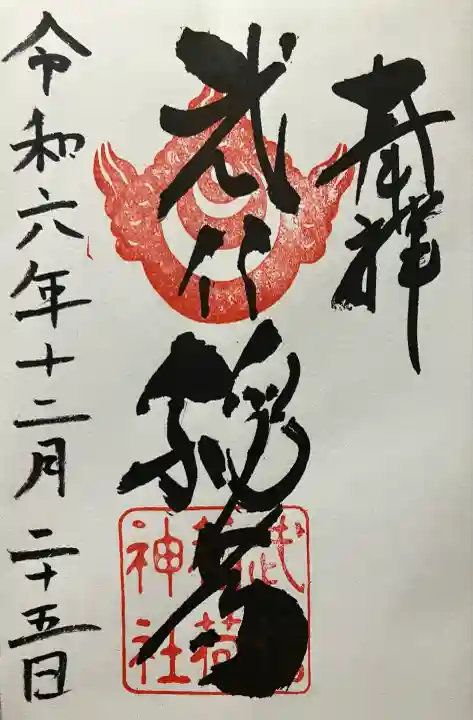 奉拝
武
稲荷
武
稲荷
神社
令和六年十二月二十五日